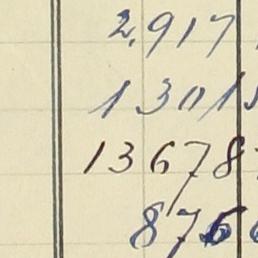 2,917
13015
13678
876